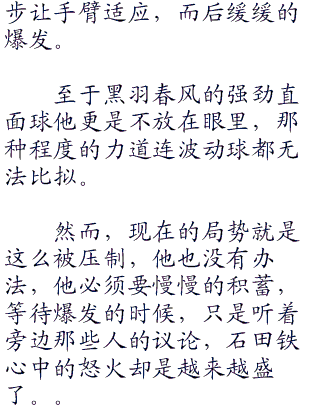 步让手臂适应，而后缓缓的
爆发。
至于黑羽春风的强劲直
面球他更是不放在眼里，那
种程度的力道连波动球都无
法比拟。
然而，现在的局势就是
这么被压制，他也没有办
法，他必须要慢慢的积蓄，
等待爆发的时候，只是听着
旁边那些人的议论，石田铁
心中的怒火却是越来越盛
了。。